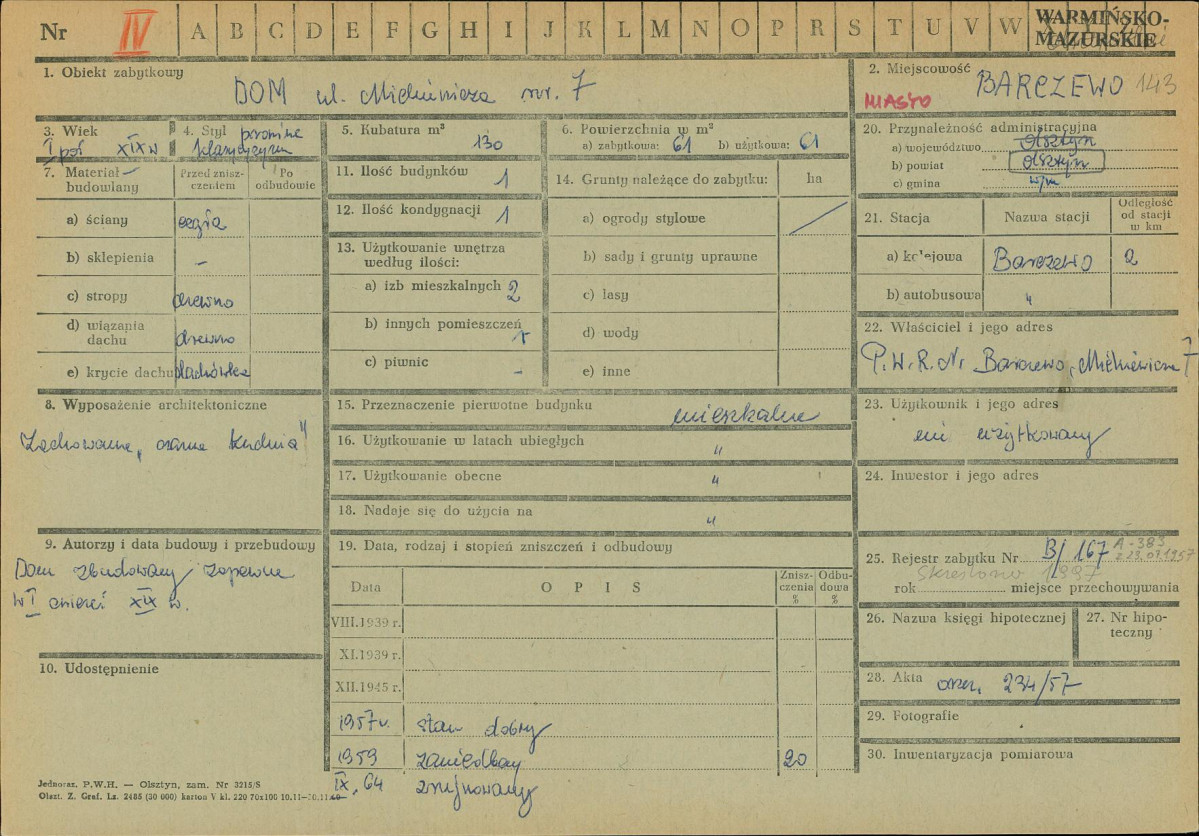 Nr IV A B C D E F G H I J K L M N O P R S T U V W WARMIŃSKO-
MAZURSKIE
1. Obiekt zabytkowy
DOM ul. Mickiewicza nr. 7
2. Miejscowość
MIASTO BARCZEWO 143
3. Wiek
I poł XIX w
4. Styl
klasycyzm
5. Kubatura m³
130
6. Powierzchnia w m²
a) zabytkowa: 61 b) użytkowa: 61
20. Przynależność administracyjna
a) województwo Olsztyn
b) powiat Olsztyn
c) gmina w/m
7. Materiał
budowlany
Przed znisz-
czeniem
Po
odbudowie
a) ściany cegła
b) sklepienia –
c) stropy drewno
d) wiązania
dachu drewno
e) krycie dachu dachówka
11. Ilość budynków 1
12. Ilość kondygnacji 1
13. Użytkowanie wnętrza
według ilości:
a) izb mieszkalnych 2
b) innych pomieszczeń 1
c) piwnic –
14. Grunty należące do zabytku: ha
a) ogrody stylowe
b) sady i grunty uprawne
c) lasy
d) wody
e) inne
21. Stacja Nazwa stacji
Odległość
od stacji
w km
a) kolejowa Barczewo 2
b) autobusowa "
22. Właściciel i jego adres
P.W.R.N. Barczewo, Mickiewicza 7
8. Wyposażenie architektoniczne
Zachowana „czarna kuchnia"
15. Przeznaczenie pierwotne budynku mieszkalne
16. Użytkowanie w latach ubiegłych "
17. Użytkowanie obecne "
18. Nadaje się do użycia na "
23. Użytkownik i jego adres
nie użytkowany
24. Inwestor i jego adres
9. Autorzy i data budowy i przebudowy
Dom zbudowany zapewne
w I ćwierci XIX w.
10. Udostępnienie
19. Data, rodzaj i stopień zniszczeń i odbudowy
Data OPIS
Znisz-
czenia
%
Odbu-
dowa
%
VIII.1939 r.
XI.1939 r.
XII.1945 r.
1957 r. stan dobry
1959 zaniedbany 20
IX. 64 zrujnowany
25. Rejestr zabytku Nr B/167 A-383
z 23.07.1957
Skreślono 1997
rok miejsce przechowywania
26. Nazwa księgi hipotecznej
27. Nr hipo-
teczny
28. Akta orzec. 234/57
29. Fotografie
30. Inwentaryzacja pomiarowa
Jednoraz. P.W.H. — Olsztyn, zam. Nr 3215/S
Olszt. Z. Graf. Lz. 2485 (30 000) karton V kl. 220 70x100 10.11–30.11.60